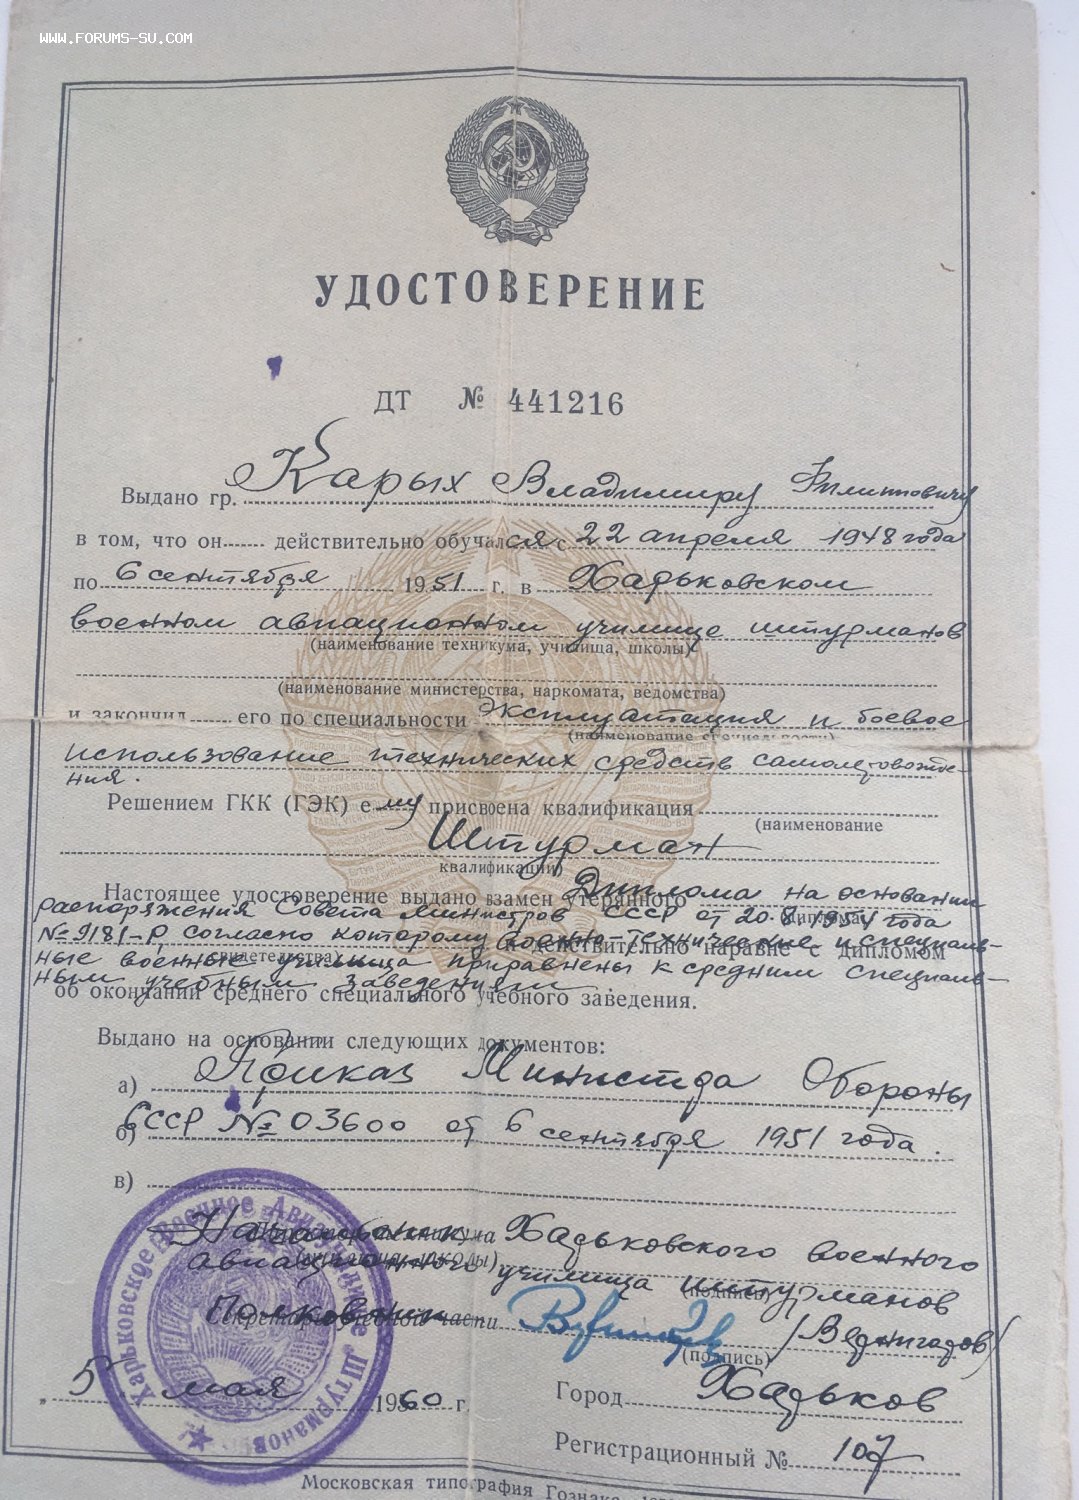 WWW.FORUMS-SU.COM
УДОСТОВЕРЕНИЕ
ДТ № 441216
Выдано гр. Карых Владимиру Филипповичу
в том, что он действительно обучался с 22 апреля 1948 года
по 6 сентября 1951 г. в Харьковском
военном авиационном училище штурманов
(наименование техникума, училища, школы)
(наименование министерства, наркомата, ведомства)
и закончил его по специальности Эксплуатация и боевое
(наименование специальности)
использование технических средств самолетовожде-
ния.
Решением ГКК (ГЭК) ему присвоена квалификация
(наименование
Штурман
квалификации)
Настоящее удостоверение выдано взамен утерянного Диплома на основании
распоряжения Совета Министров СССР от 20.8.1954 года
№ 9181-р, согласно которому военно-технические и специаль-
действительно наравне с дипломом
ные военные училища приравнены к средним специаль-
ным учебным заведениям
об окончании среднего специального учебного заведения.
Выдано на основании следующих документов:
а) Приказ Министра Обороны
б) СССР № 03600 от 6 сентября 1951 года.
в)
Начальник Харьковского военного
авиационного училища штурманов
(подпись)
Полковник
Секретарь учебной части
(подпись)
5 мая 1960 г.
Город Харьков
Регистрационный № 107
Харьковское Военное Авиационное Штурманов
Московская типография Гознака